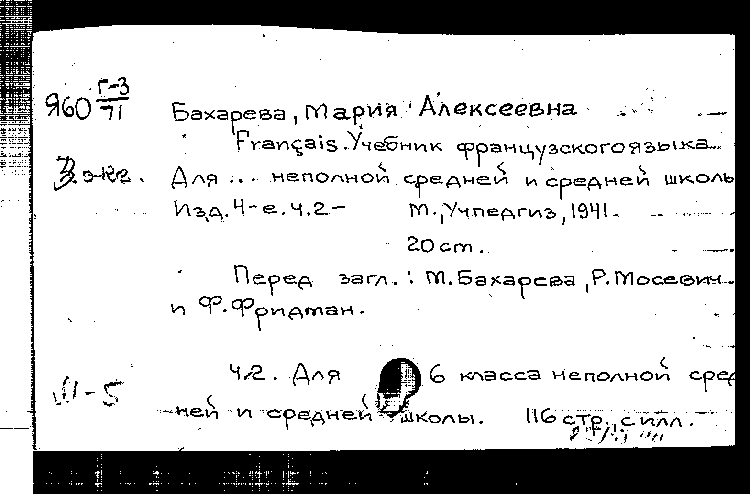 Я60 Г-3/71
Бахарева, Мария Алексеевна
Français. Учебник французского языка.
3 экз. Для ... неполной средней и средней школы
Изд. 4-е. ч.2- М., Учпедгиз, 1941.
20 cm.
Перед загл.: М. Бахарева, Р. Мосевич
и Ф. Фридман.
Ч.2. Для 6 класса неполной сред
III-5
ней и средней школы. 116 стр., с илл.